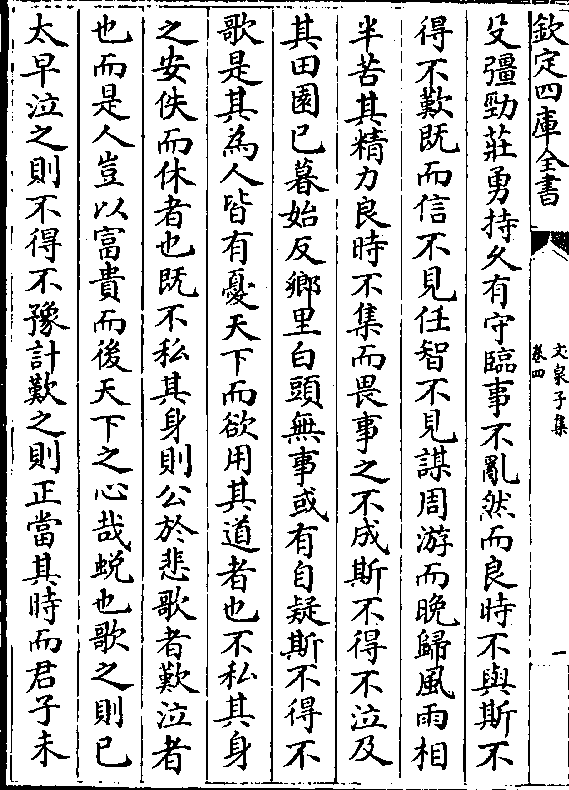 欽定四庫全書
文泉子集
卷四
一
殳彊勁莊勇持久有守臨事不亂然而良時不與斯不
得不歎既而信不見任智不見謀周游而晚歸風雨相
半苦其精力良時不集而畏事之不成斯不得不泣及
其田園已暮始反鄉里白頭無事或有自疑斯不得不
歌是其為人皆有憂天下而欲用其道者也不私其身
之安佚而休者也既不私其身則公於悲歌者歎泣者
也而是人豈以富貴而後天下之心哉蛻也歌之則已
太早泣之則不得不豫計歎之則正當其時而君子未